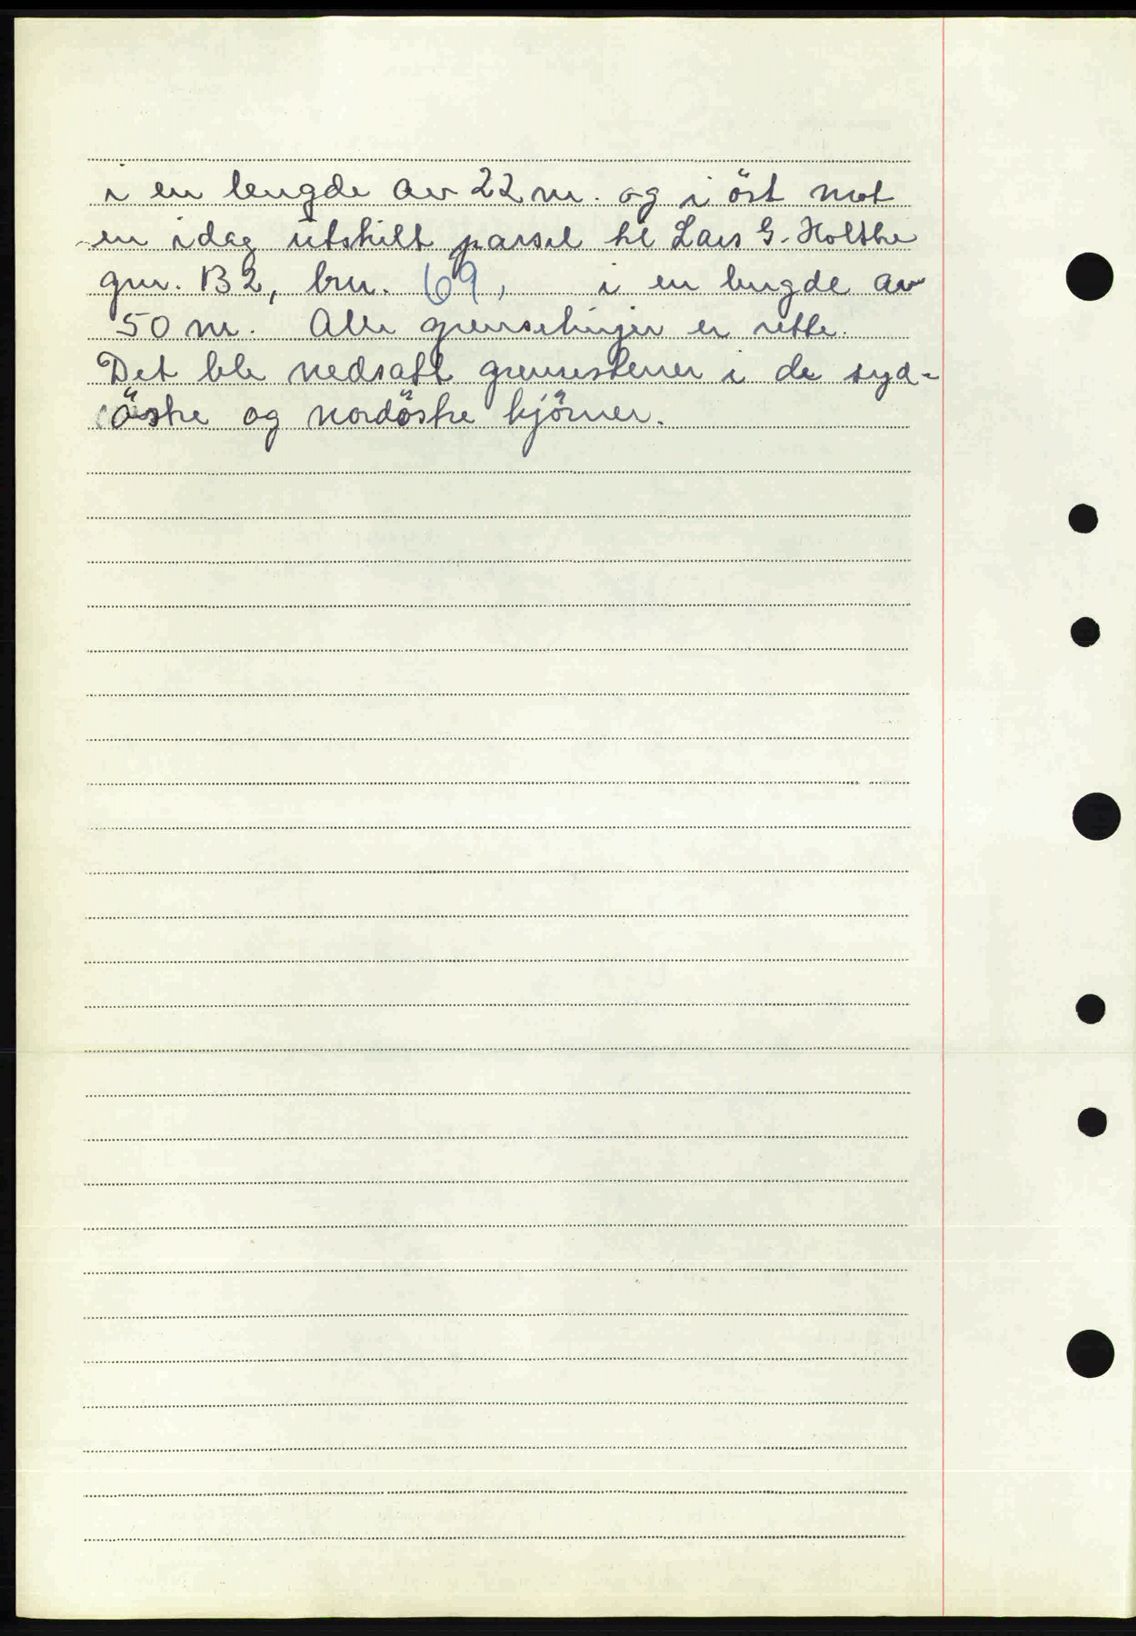 i en lengde av 22 m. og i öst mot
en idag utskilt parsel til Lars G. Holthe
gnr. 132, bnr. 69, i en lengde av
50 m. Alle grenselinjer er rette.
Det ble nedsatt grensestener i de syd-
östre og nordöstre hjörner.